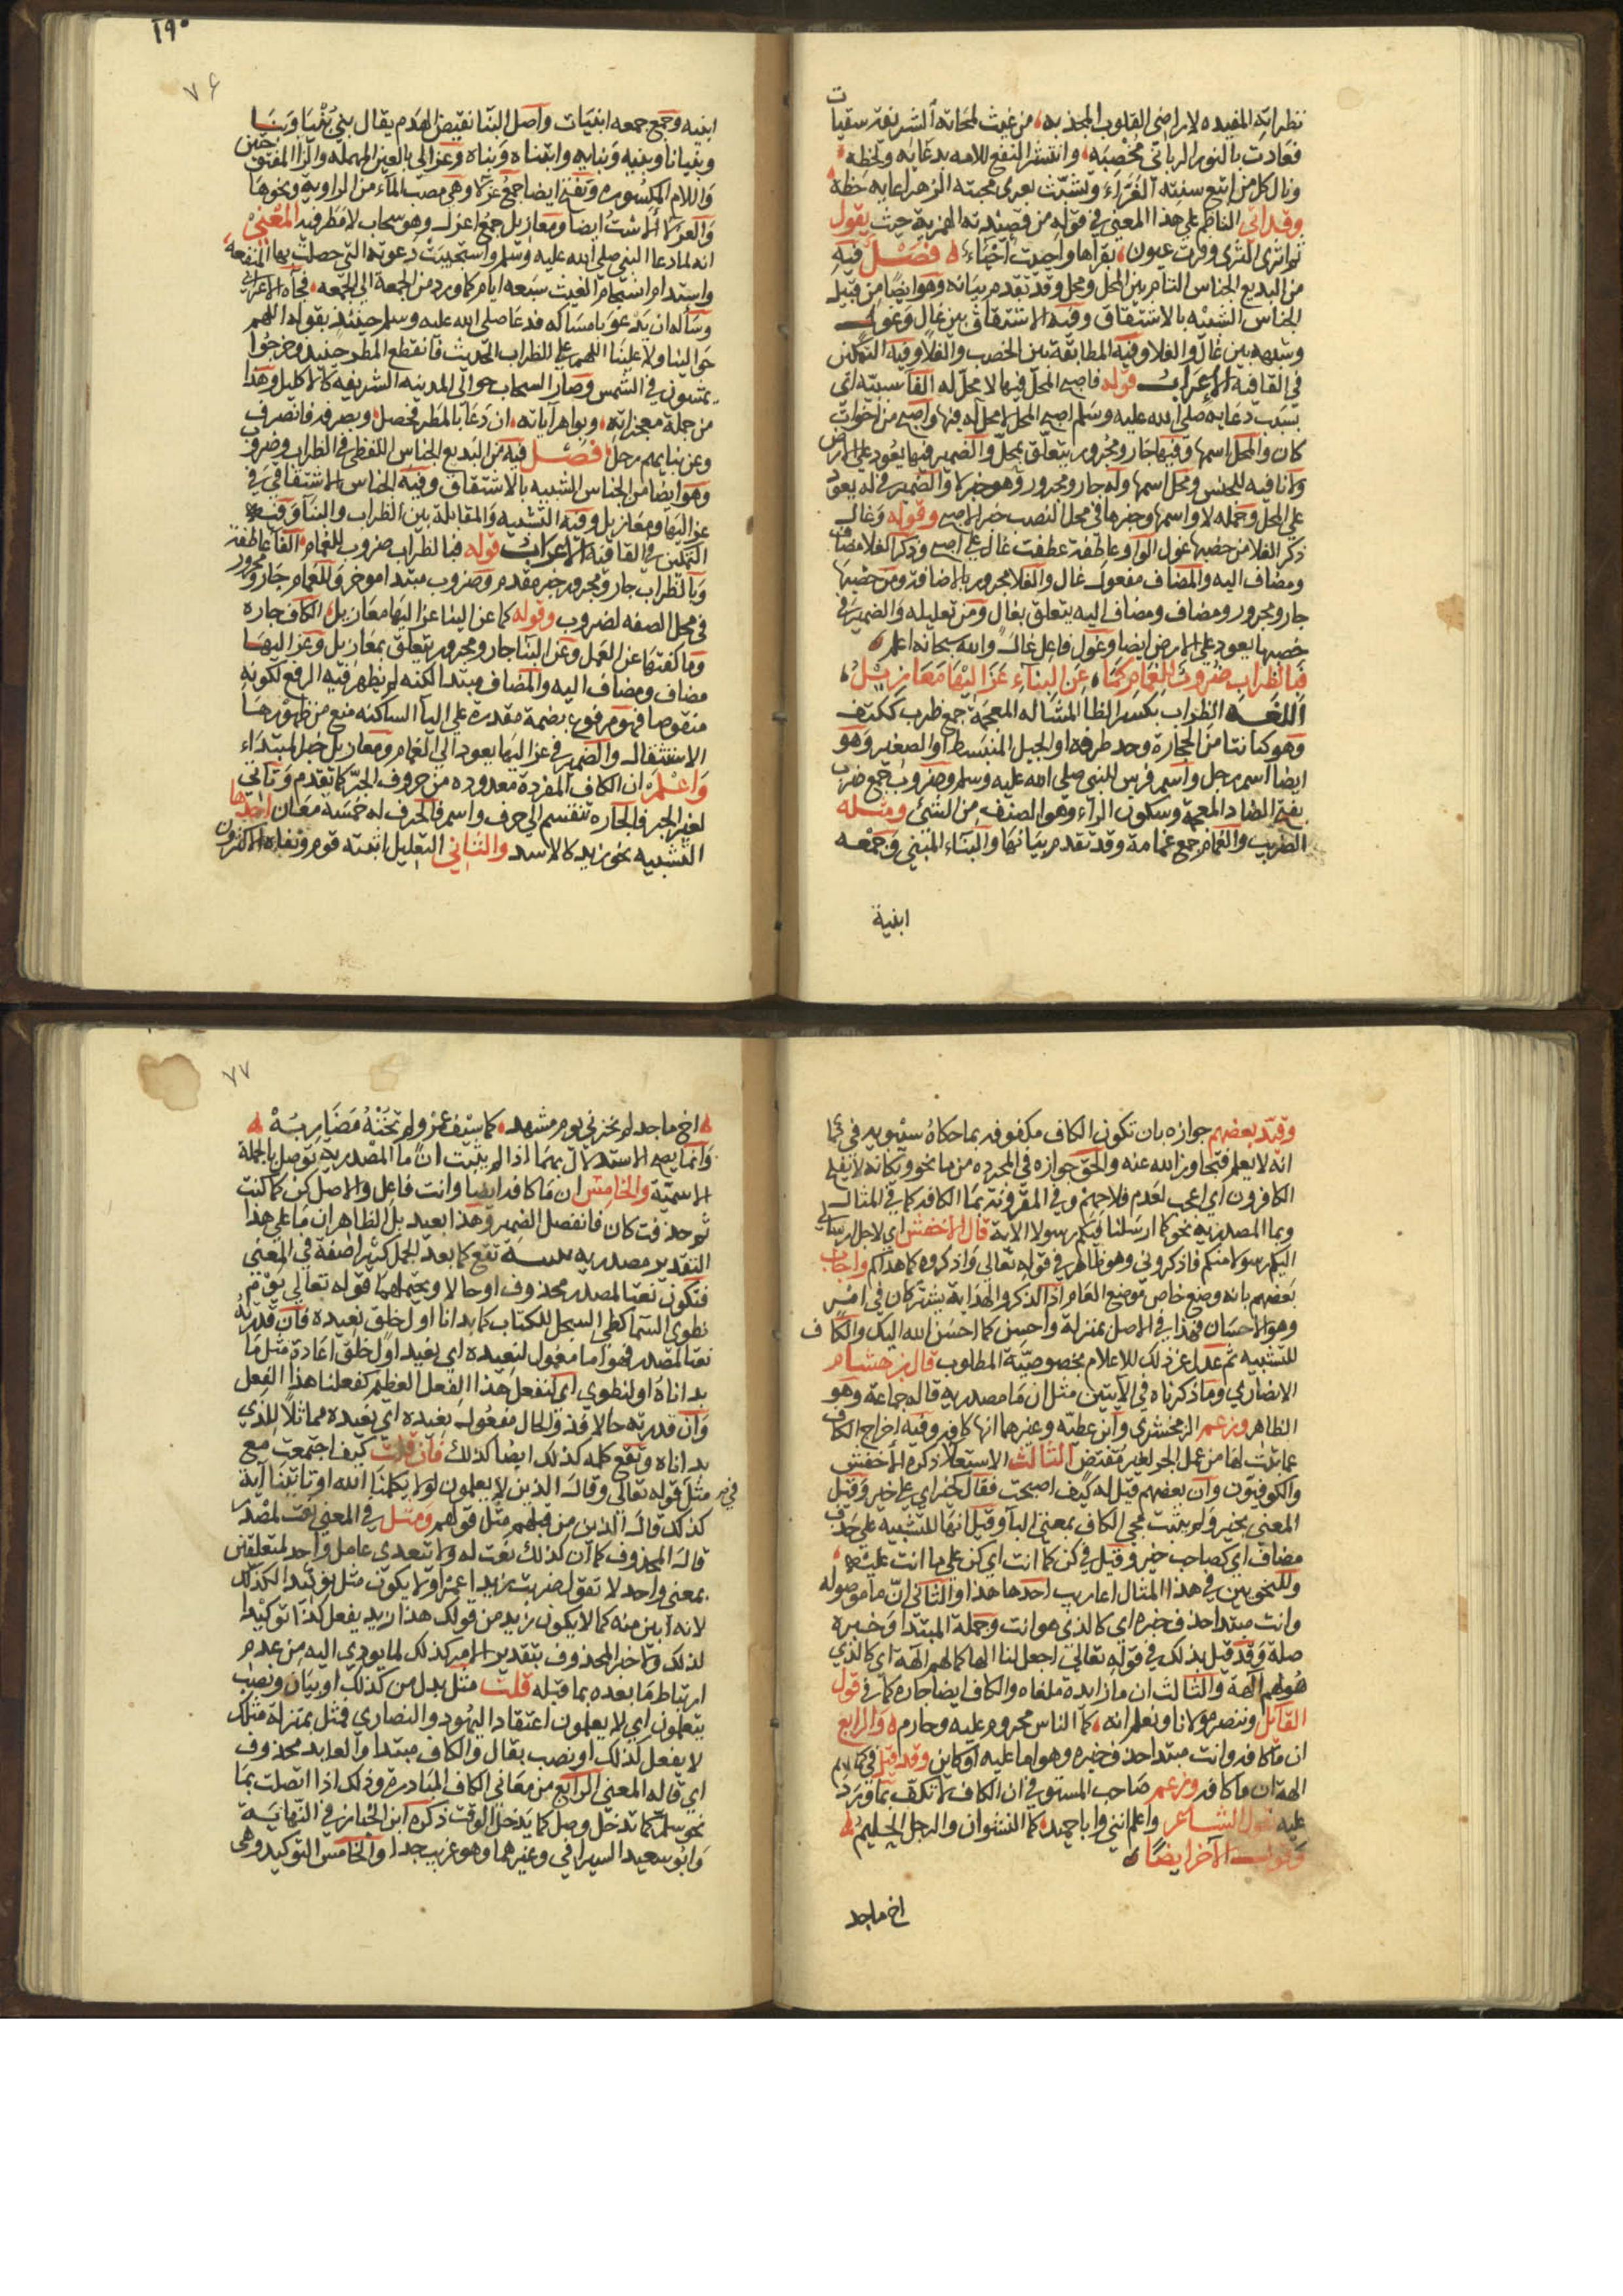 نظراته المفيده لاراضي القلوب المجذبه من غيث لمحاته الشريفة سقيات
فعادت بالنور الرباني مخصبه وانتشر النفع للامه بدعائه ولحظه
ونال كل من اتبع سنته الغراء وتشبث بعرى محبته الزهراء غايه حظه
وقد اتى الناظم علي هذا المعني في قوله من قصيدته الهمزية حيث يقول
ثم اثرى الثرى وقرت عيون بقراها واحييت احياء فصل فيه
من البديع الجناس التام بين المحل ومحل وقد تقدم بيانه وهو ايضا من قبيل
الجناس الشبيه بالاشتقاق وفيه الاشتقاق بين غال وغول
وشبهه بين غال والغلا وفيه المطابقة بين الخصب والغلا وفيه التمكين
في القافيه الاعراب قوله فاصبح المحل فيها لا محل له الفا سببيه اي
بسبب دعايه صلي الله عليه وسلم اصبح المحل لا محل له فيها واصبح من اخوات
كان والمحل اسمها وفيها جار ومجرور يتعلق بمحل والضمير فيها يعود علي الارض
ولا نافيه للجنس ومحل اسمها وله جار ومجرور وهو خبر لا والضمير في له يعود
علي المحل وجمله لا واسمها وخبرها في محل النصب خبر لاصبح وقوله وغال
ذكر الغلا من خصبها غول الواو عاطفة عطفت غال علي اصبح وذكر الغلا مضاف
ومضاف اليه والمضاف مفعول غال والغلا مجرور بالاضافة ومن خصبها
جار ومجرور ومضاف ومضاف اليه يتعلق بغال ومن تعليليه والضمير في
خصبها يعود علي الارض ايضا وغول فاعل غال والله سبحانه اعلم
فبالظراب ضروب للغمام كما عن البناء عزاليها معازيل
اللغه الظراب بكسر الظا المشاله المعجمة جمع ظرب ككتف
وهو كما نتا من الحجارة وحد طرفه او الجبل المنبسط او الصغير وهو
ايضا اسم رجل واسم فرس للنبي صلي الله عليه وسلم وضروب جمع ضرب
بفتح الضاد المعجمة وسكون الراء وهو الصنف من الشئ ومثله
الضريب والغمام جمع غمامة وقد تقدم بيانها والبناء المبني وجمعه
ابنية
١٩٠
٧٦
ابنيه وجمع جمعه ابنيات واصل البنا نقيض الهدم يقال بني بنيا وبنا
وبنيانا وبنيه وبنايه وابتناه وبناه وعزالي بالعين المهمله والزا المفتوحتين
واللام المكسوره وتفتح ايضا جمع عزلا وهي مصب الماء من الراوية ونحوها
والعزلا الاست ايضا ومعازيل جمع اعزل وهو سحاب لا مطر فيه المعني
انه لما دعا النبي صلي الله عليه وسلم واستجيبت دعوته التي حصلت بها المنفعة
واستدام انسجام الغيث سبعه ايام كما ورد من الجمعة الي الجمعه فجاه الاعرابي
وسأله ان يدعو بامساكه فدعا صلي الله عليه وسلم حينئذ بقوله اللهم
حوالينا ولا علينا اللهم علي الظراب الحديث فانقطع المطر حينئذ وخرجوا
يمشون في الشمس وصار السحاب حوالي المدينه الشريفة كالاكليل وهذا
من جملة معجزاته وبواهر آياته ان دعا بالمطر فحصل وبصرفه فانصرف
وعن بنايهم رحل فصل فيه من البديع الجناس اللفظي في الظراب وضروب
وهو ايضا من الجناس الشبيه بالاشتقاق وفيه الجناس الاشتقاقي في
عزاليها ومعازيل وفيه التشبيه والمقابلة بين الظراب والبنا وفيه
التمكين في القافية الاعراب قوله فبالظراب ضروب للغمام الفا عاطفة
وبالظراب جار ومجرور خبر مقدم وضروب مبتدا موخر وللغمام جار ومجرور
في محل الصفه لضروب وقوله كما عن البنا عزاليها معازيل الكاف جاره
وما كفتها عن العمل وعن البنا جار ومجرور يتعلق بمعازيل وعزاليها
مضاف ومضاف اليه والمضاف مبتدا لكنه لم يظهر فيه الرفع لكونه
منقوصا فهو مرفوع بضمة مقدرة علي اليا الساكنه منع من ظهورها
الاستثقال والضمير في عزاليها يعود الي الغمام ومعازيل خبر المبتداء
واعلم ان الكاف المفردة معدوده من حروف الجر كما تقدم وتاتي
لغير الجر فالجاره تنقسم الي حرف واسم فالحرف له خمسة معان احدها
التشبيه نحو زيد كالاسد والثاني التعليل اثبته قوم ونفاه الاكثرون
وقيد بعضهم جوازه بان تكون الكاف مكفوفه بما حكاه سيبويه في كما
انه لا يعلم فتجاوز الله عنه والحق جوازه في المجرده من ما نحو ويكانه لا يفلح
الكافرون اي اعجب لعدم فلاحهم وفي المقرونة بما الكافه كما في المثال
وبما المصدريه نحو كما ارسلنا فيكم رسولا الاية قال الاخفش اي لاجل ارسالي
اليكم رسولا منكم فاذكروني وهو ظاهر في قوله تعالي واذكروه كما هداكم واجاب
بعضهم بانه وضع خاص موضع العام اذ الذكر والهداية يشتركان في امر
وهو الاحسان فهذا في الاصل بمنزلة واحسن كما احسن الله اليك والكاف
للتشبيه ثم عدل عن ذلك للاعلام بخصوصية المطلوب قال بن هشام
الانصاري وما ذكرناه في الايتين مثل ان ما مصدريه قاله جماعة وهو
الظاهر وزعم الزمخشري وابن عطيه وغيرهما انها كافه وفيه اخراج الكاف
عما ثبت لها من عمل الجر لغير مقتض الثالث الاستعلا ذكره الاخفش
والكوفيون وان بعضهم قيل له كيف اصبحت فقال كخير اي علي خير وقيل
المعني بخير ولم يثبت مجي الكاف بمعني البا وقيل انها للتشبيه علي حذف
مضاف اي كصاحب خير وقيل في كن كما انت اي كن علي ما انت عليه
وللنحويين في هذا المثال اعاريب احدها هذا والثاني ان ما موصوله
وانت مبتدا حذف خبره اي كالذي هو انت وجملة المبتدا وخبره
صلة وقد قيل بذلك في قوله تعالي اجعل لنا الها كما لهم الهة اي كالذي
هو لهم آلهة والثالث ان ما زايدة ملغاه والكاف ايضا جاره كما في قول
القائل وننصر مولانا ونعلم انه كما الناس مجروم عليه وجارم والرابع
ان ما كافه وانت مبتدا حذف خبره وهو اما عليه او كاين وقد قيل في كما لهم
الهة ان ما كافه وزعم صاحب المستوفي ان الكاف لا تكف بما ورد
عليه بقول الشاعر واعلم انني وابا حميد كما النشوان والرجل الحليم
وقول الآخر ايضا
اخ ماجد
٧٧
اخ ماجد لم يخزني يوم مشهد كما سيف عمرو لم تخنه مضاربه
وانما يصح الاستدلال بهما اذا لم يثبت ان ما المصدرية توصل بالجملة
الاسمية والخامس ان ما كافه ايضا وانت فاعل والاصل كن كما كنت
ثم حذفت كان فانفصل الضمير وهذا بعيد بل الظاهر ان ما علي هذا
التقدير مصدريه تقع كما بعد الجمل كثيرا صفة في المعني
فتكون نعتا لمصدر محذوف او حالا ويحتملهما قوله تعالي يوم
نطوي السما كطي السجل للكتاب كما بدانا اول خلق نعيده فان قدرته
نعتا لمصدر فهو اما معمول لنعيده اي نعيد اول خلق اعادة مثل ما
بداناه او لنطوي اي نفعل هذا الفعل العظيم كفعلنا هذا الفعل
وان قدرته حالا فذو الحال مفعول نعيده اي نعيده مماثلا للذي
بداناه وتقع كلمه كذلك ايضا كذلك فان قلت كيف اجتمعت مع
مثل في قوله تعالي وقال الذين لا يعلمون لولا يكلمنا الله او تاتينا آية
كذلك قال الذين من قبلهم مثل قولهم ومثل في المعني نعت لمصدر
قال المحذوف كما ان كذلك نعت له ولا يتعدي عامل واحد لمتعلقين
بمعني واحد لا تقول ضربت زيدا عمرا ولا يكون مثل توكيدا لكذلك
لانه ابين منه كما لا يكون زيد من قولك هذا زيد يفعل كذا توكيدا
لذلك ولا خبر المحذوف بتقدير الامر كذلك لما يودي اليه من عدم
ارتباط ما بعده بما قبله قلت مثل بدل من كذلك او بيان ونصب
بيعلمون اي لا يعلمون اعتقاد اليهود والنصاري فمثل بمنزلة مثلك
لا يفعل كذلك او نصب بقال والكاف مبتدا والعايد محذوف
اي قاله المعني الرابع من معاني الكاف المبادرة وذلك اذا اتصلت بما
نحو سلم كما تدخل وصل كما يدخل الوقت ذكره ابن الخباز في النهاية
وابو سعيد السيرافي وغيرهما وهو غريب جدا والخامس التوكيد وهي